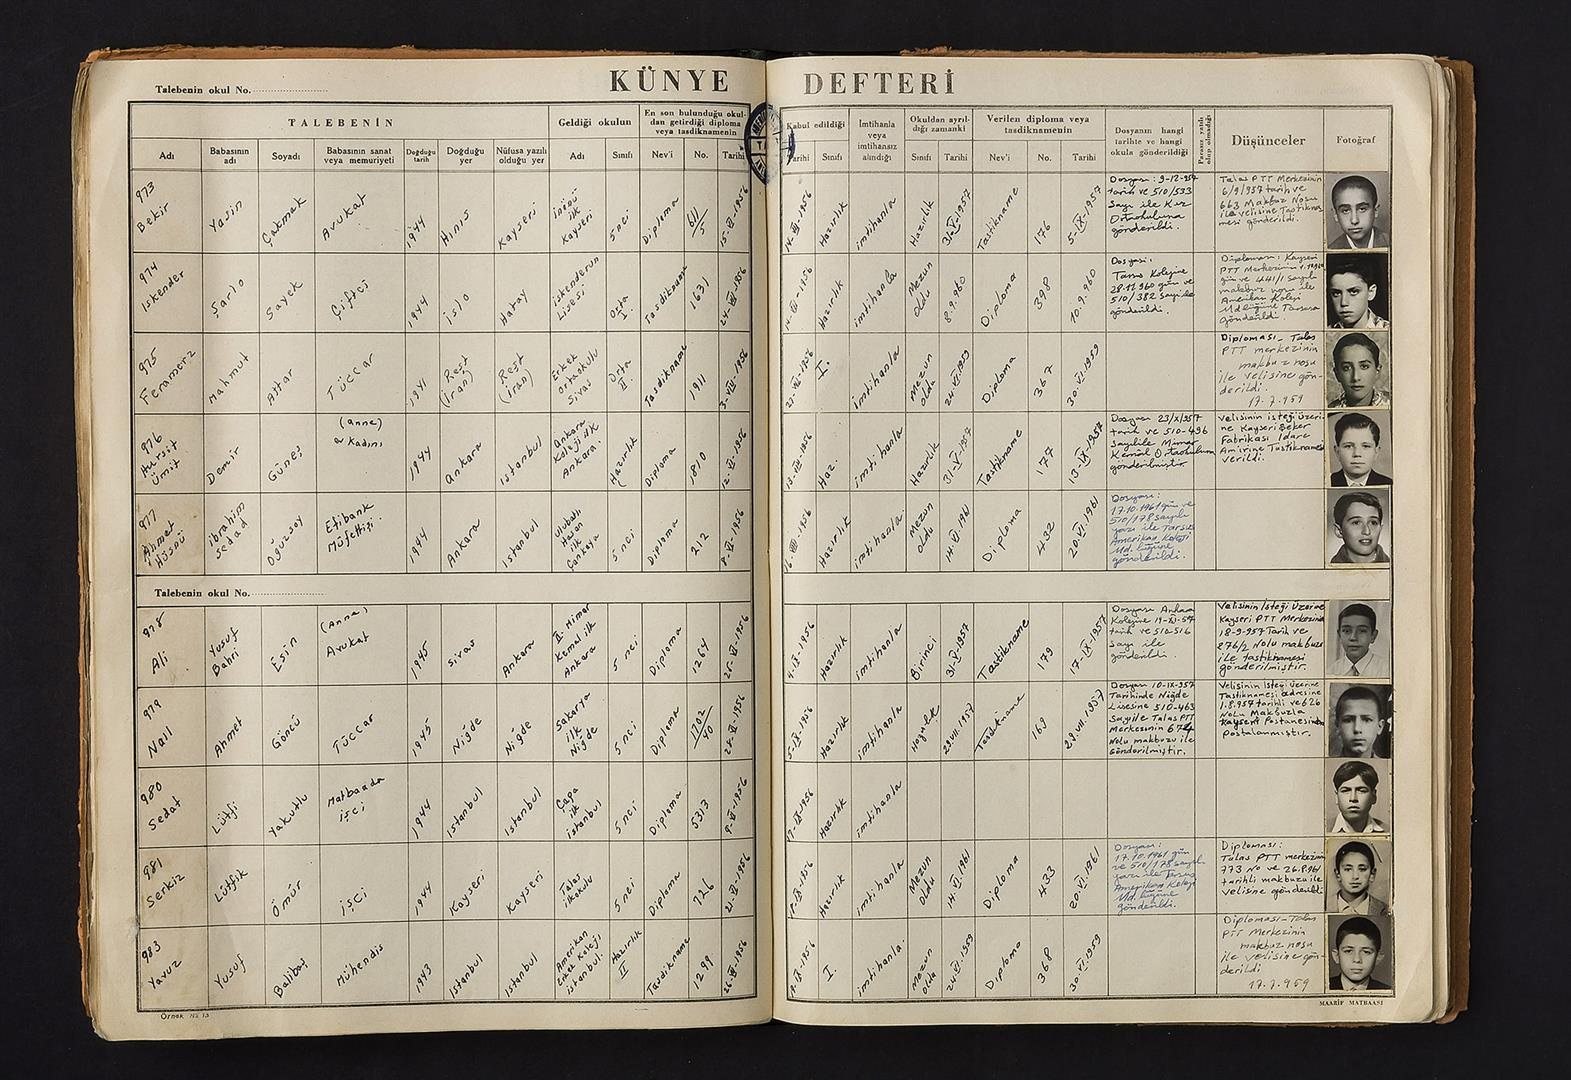 KÜNYE DEFTERİ
Talebenin okul No.
TALEBENİN
Geldiği okulun
En son bulunduğu okul-
dan getirdiği diploma
veya tasdiknamenin
Kabul edildiği
İmtihanla
veya
imtihansız
alındığı
Okuldan ayrıl-
dığı zamanki
Verilen diploma veya
tasdiknamenin
Dosyanın hangi
tarihte ve hangi
okula gönderildiği
Parasız yatılı
olup olmadığı
Düşünceler
Fotoğraf
Adı
Babasının
adı
Soyadı
Babasının sanat
veya memuriyeti
Doğduğu
tarih
Doğduğu
yer
Nüfusa yazılı
olduğu yer
Adı
Sınıfı
Nev'i
No.
Tarihi
Tarihi
Sınıfı
Sınıfı
Tarihi
Nev'i
No.
Tarihi
973
Bekir
Yasin
Çakmak
Avukat
1944
Hınıs
Kayseri
İnönü
ilk
Kayseri
5 nci
Diploma
611/5
15-VI-1956
Hazırlık
imtihanla
Hazırlık
31-V-1957
Tastikname
176
5-IX-1957
Dosyası: 9-12-957
tarih ve 510/533
sayı ile Kız
Ortaokuluna
gönderildi.
Talas PTT Merkezinin
6/9/957 tarih ve
663 Makbuz Nosu
ile velisine Tastikna-
mesi gönderildi.
974
İskender
Şarlo
Sayek
Çiftçi
1944
Hatay
İskenderun
Lisesi
Orta
I.
Tasdikname
1631
Hazırlık
imtihanla
Mezun
oldu
8.9.960
Diploma
398
10.9.960
Dosyası:
Tarsus Kolejine
28.12.960 gün ve
510/382 sayı ile
gönderildi.
975
Feramerz
Mahmut
Attar
Tüccar
1941
Reşt
(İran)
Reşt
(İran)
Erkek
Ortaokulu
Sivas
Orta
II.
Tasdikname
1911
I.
imtihanla
Mezun
oldu
24-VI-1959
Diploma
367
30-VI-1959
Diploması- Talas
PTT merkezinin
makbuz nosu
ile velisine gön-
derildi.
17.7.959
976
Hurşit
Ümit
Demir
Güneş
(anne)
ev Kadını
1944
Ankara
İstanbul
Ankara
Koleji ilk
Ankara
Hazırlık
Diploma
1810
12-VI-1956
Haz.
imtihanla
Hazırlık
31-V-1957
Tastikname
177
13-IX-1957
Dosyası 23/X/957
tarih ve 510-496
sayı ile Mimar
Kemal Ortaokuluna
gönderilmiştir
Velisinin isteği üzeri-
ne Kayseri Şeker
Fabrikası İdare
Amirine Tastiknamesi
verildi.
977
Ahmet
Hüsnü
İbrahim
Sedad
Oğuzsoy
Etibank
Müfettişi.
1944
Ankara
İstanbul
Ulubatlı
Hasan
ilk
Çankaya
5 nci
Diploma
212
8-VI-1956
Hazırlık
imtihanla.
Mezun
oldu
14-VI-1961
Diploma
432
20.VI.1961
Dosyası:
17.10.1961 gün ve
510/178 sayılı
yazı ile Tarsus
Amerikan Koleji
Md. lüğüne
gönderildi.
Talebenin okul No.
978
Ali
Yusuf
Bahri
Esin
(Anne)
Avukat
1945
Sivas
Ankara
Mimar
Kemal ilk
Ankara
5 nci
Diploma
1264
Hazırlık
imtihanla
Birinci
31-V-1957
Tastikname
179
17-IX-1957
Dosyası Ankara
Kolejine 19-XI-57
tarih ve 510-516
sayı ile
gönderildi.
Velisinin isteği üzerine
Kayseri PTT Merkezinin
18-9-957 Tarih ve
276/2 Nolu makbuzu
ile tastiknamesi
gönderilmiştir.
979
Nail
Ahmet
Göncü
Tüccar
1945
Niğde
Niğde
Sakarya
ilk
Niğde
5 nci
Diploma
1702/40
Hazırlık
imtihanla
29.VII.1957
Tasdikname
169
29.VII.1957
Dosyası 10-IX-957
Tarihinde Niğde
Lisesine 510-463
Sayı ile Talas PTT
Merkezinin 674
Nolu makbuzu ile
Gönderilmiştir.
Velisinin isteği üzerine
Tastiknamesi adresine
1.8.957 tarihli ve 626
Nolu Makbuzla
Kayseri Postanesinden
postalanmıştır.
980
Sedat
Lütfi
Yakutlu
Matbaada
işçi
1944
İstanbul
İstanbul
Çapa
ilk
İstanbul
5 nci
Diploma
5313
9-VI-1956
Hazırlık
imtihanla
981
Serkiz
Lütfik
Ömür
işçi
1944
Kayseri
Kayseri
Talas
ilkokulu
5 nci
Diploma
726
Hazırlık
imtihanla
Mezun
oldu
14-VI.1961
Diploma
433
20.VI.1961
Dosyası:
17.10.1961 gün
ve 510/178 sayılı
yazı ile Tarsus
Amerikan Koleji
Md. lüğüne
gönderildi.
Diploması:
Talas PTT merkezinin
773 No ve 26.8.961
tarihli makbuzu ile
velisine gönderildi
983
Yavuz
Yusuf
Balibaş
Mühendis
1943
İstanbul
İstanbul
Amerikan
Erkek Koleji
İstanbul.
Hazırlık
II
Tasdikname
1299
I.
imtihanla.
Mezun
oldu
24-VI-1959
Diploma
368
30-VI-1959
Diploması- Talas
PTT Merkezinin
makbuz nosu
ile velisine gön-
derildi
17.7.959
Örnek No 15
MAARİF MATBAASI